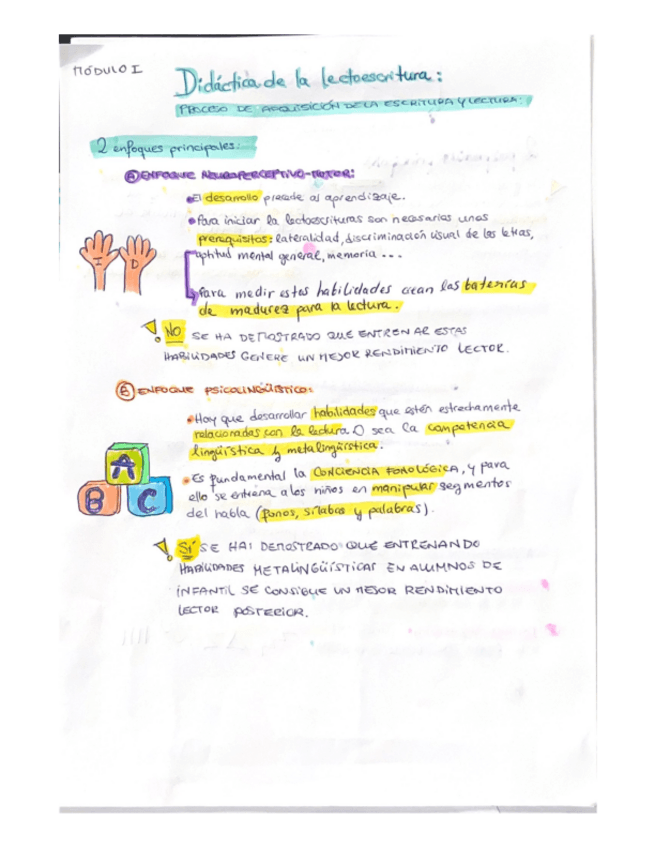 MÓDULO I
Didáctica de la lectoescritura:
PROCESO DE ADQUISICIÓN DE LA ESCRITURA Y LECTURA:
2 enfoques principales:
A) ENFOQUE NEUROPERCEPTIVO-MOTOR:
• El desarrollo precede al aprendizaje.
• Para iniciar la lectoescrituras son necesarias unos
prerequisitos: lateralidad, discriminación visual de las letras,
aptitud mental general, memoria...
I D
Para medir estas habilidades crean las baterías
de madurez para la lectura.
! NO SE HA DEMOSTRADO QUE ENTRENAR ESTAS
HABILIDADES GENERE UN MEJOR RENDIMIENTO LECTOR.
B) ENFOQUE PSICOLINGÜÍSTICO:
• Hay que desarrollar habilidades que estén estrechamente
relacionadas con la lectura. O sea la competencia
lingüística y metalingüística.
A
B C
• Es fundamental la CONCIENCIA FONOLÓGICA, y para
ello se entrena a los niños en manipular segmentos
del habla (fonos, sílabas y palabras).
! SÍ SE HA DEMOSTRADO QUE ENTRENANDO
HABILIDADES METALINGÜÍSTICAS EN ALUMNOS DE
INFANTIL SE CONSIGUE UN MEJOR RENDIMIENTO
LECTOR POSTERIOR.